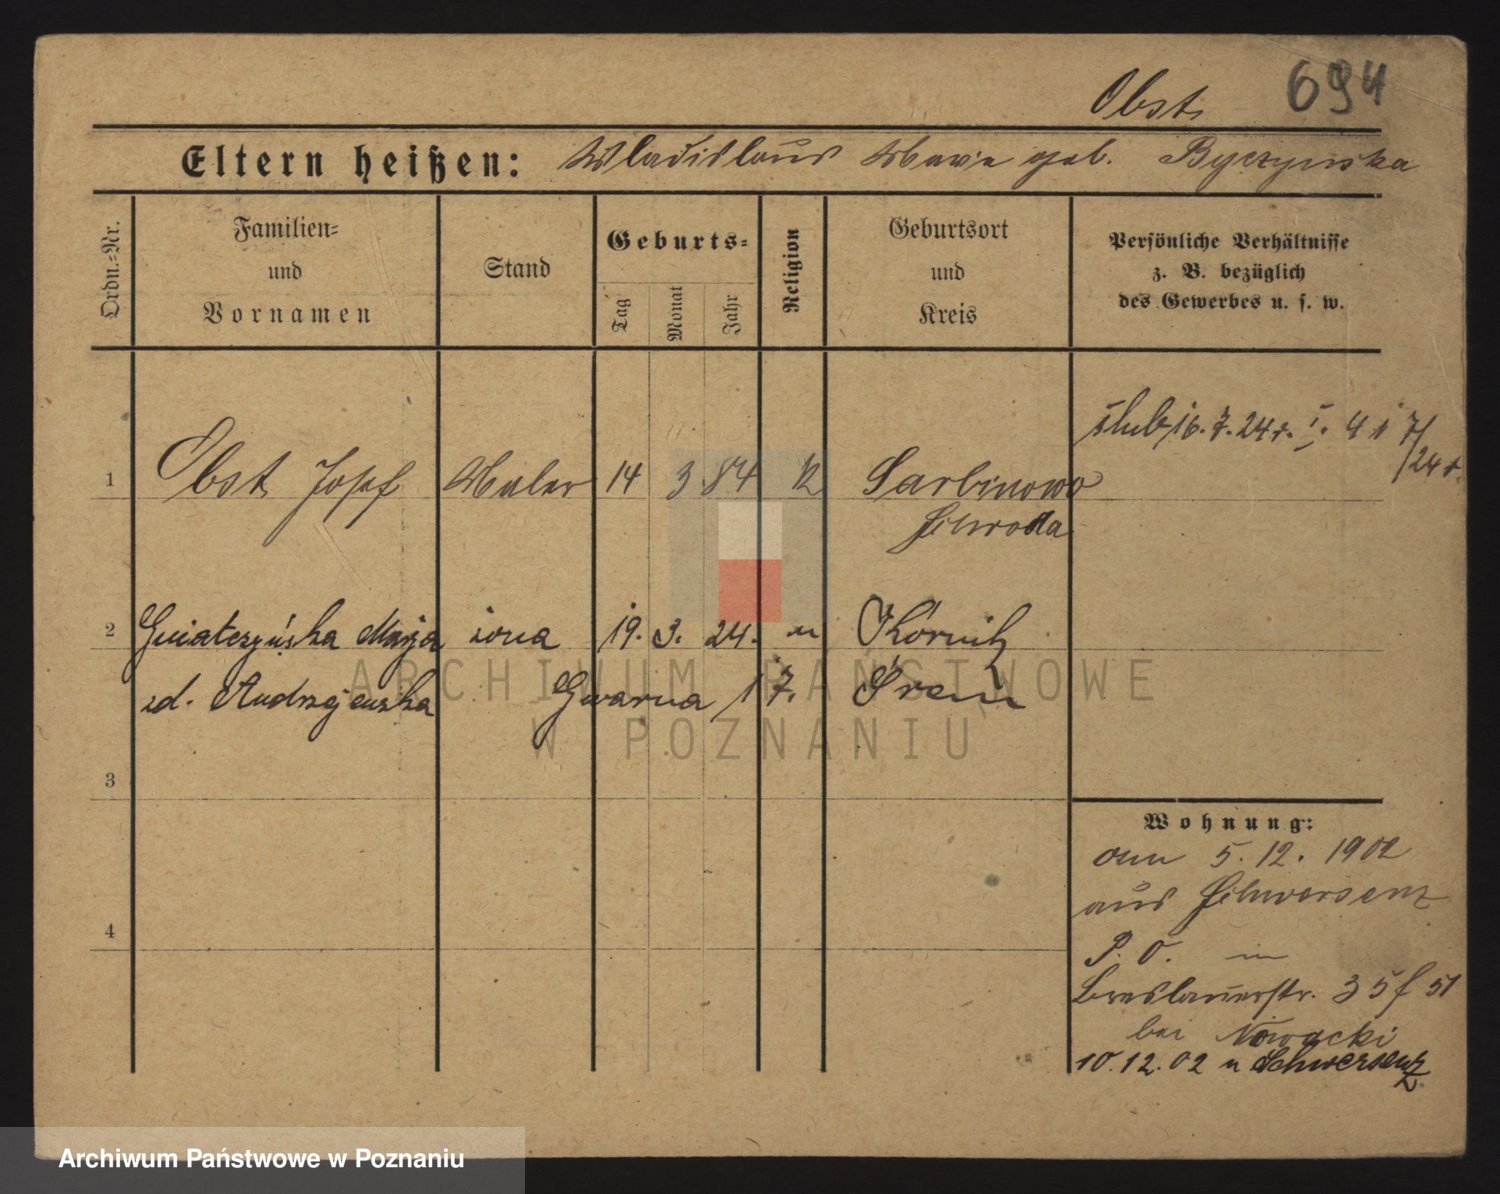 694
Obst
Eltern heißen: Wladislaus Marie geb. Byczynska
Ordn.-Nr.
Familien-
und
Vornamen
Stand
Geburts-
Tag
Monat
Jahr
Religion
Geburtsort
und
Kreis
Persönliche Verhältnisse
z. B. bezüglich
des Gewerbes u. s. w.
ślub 16.7.24r. I. 41 7/24 r.
1 Obst Josef Maler 14 3 84 K Sarbinowo
Schroda
2 Gwiatczyńska Marja żona 19. 3. 24. " Kórnik
zd. Andrzejewska Gwarna 17. Śrem
3
4
Wohnung:
am 5.12.1902
aus Schwersenz
P. O. in
Breslauerstr. 35 f 51
bei Nowacki
10.12.02 n Schwersenz
ARCHIWUM PAŃSTWOWE
W POZNANIU
Archiwum Państwowe w Poznaniu